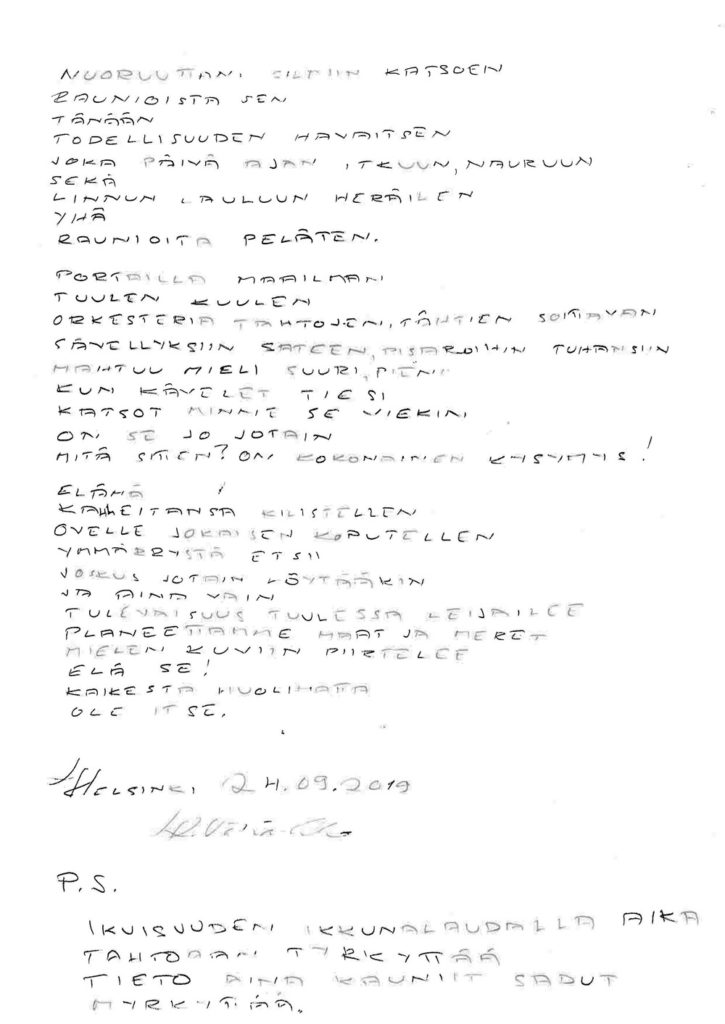 NUORUUTTANI SILMIIN KATSOEN
RAUNIOISTA SEN
TÄNÄÄN
TODELLISUUDEN HAVAITSEN
JOKA PÄIVÄ AJAN ITKUUN, NAURUUN
SEKÄ
LINNUN LAULUUN HERÄILEN
YHÄ
RAUNIOITA PELÄTEN.
PORTAILLA MAAILMANI
TUULEN KUULEN
ORKESTERIA TAHTOJEN, TÄHTIEN SOITTAVAN
SÄVELLYKSIIN SATEEN, PISAROIHIN TUHANSIIN
MAHTUU MIELI SUURI, PIENI
KUN KÄVELET TIESI
KATSOT MINNE SE VIEKIN
ON SE JO JOTAIN
MITÄ SITTEN? ON KOKONAINEN KYSYMYS!
ELÄMÄ
KAHLEITANSA KILISTELLEN
OVELLE JOKAISEN KOPUTELLEN
YMMÄRRYSTÄ ETSII
JOSKUS JOTAIN LÖYTÄÄKIN
JA AINA VAIN
TULEVAISUUS TUULESSA LEIJAILEE
PLANEETTAMME MAAT JA MERET
MIELEN KUVIIN PIIRTELEE
ELÄ SE!
KAIKESTA HUOLIMATTA
OLE ITSE.
HELSINKI 24.09.2019
P.S.
IKUISUUDEN IKKUNALAUDALLA AIKA
TAHTOAAN TYRKYTTÄÄ
TIETO AINA KAUNIIT SADUT
MYRKYTTÄÄ.